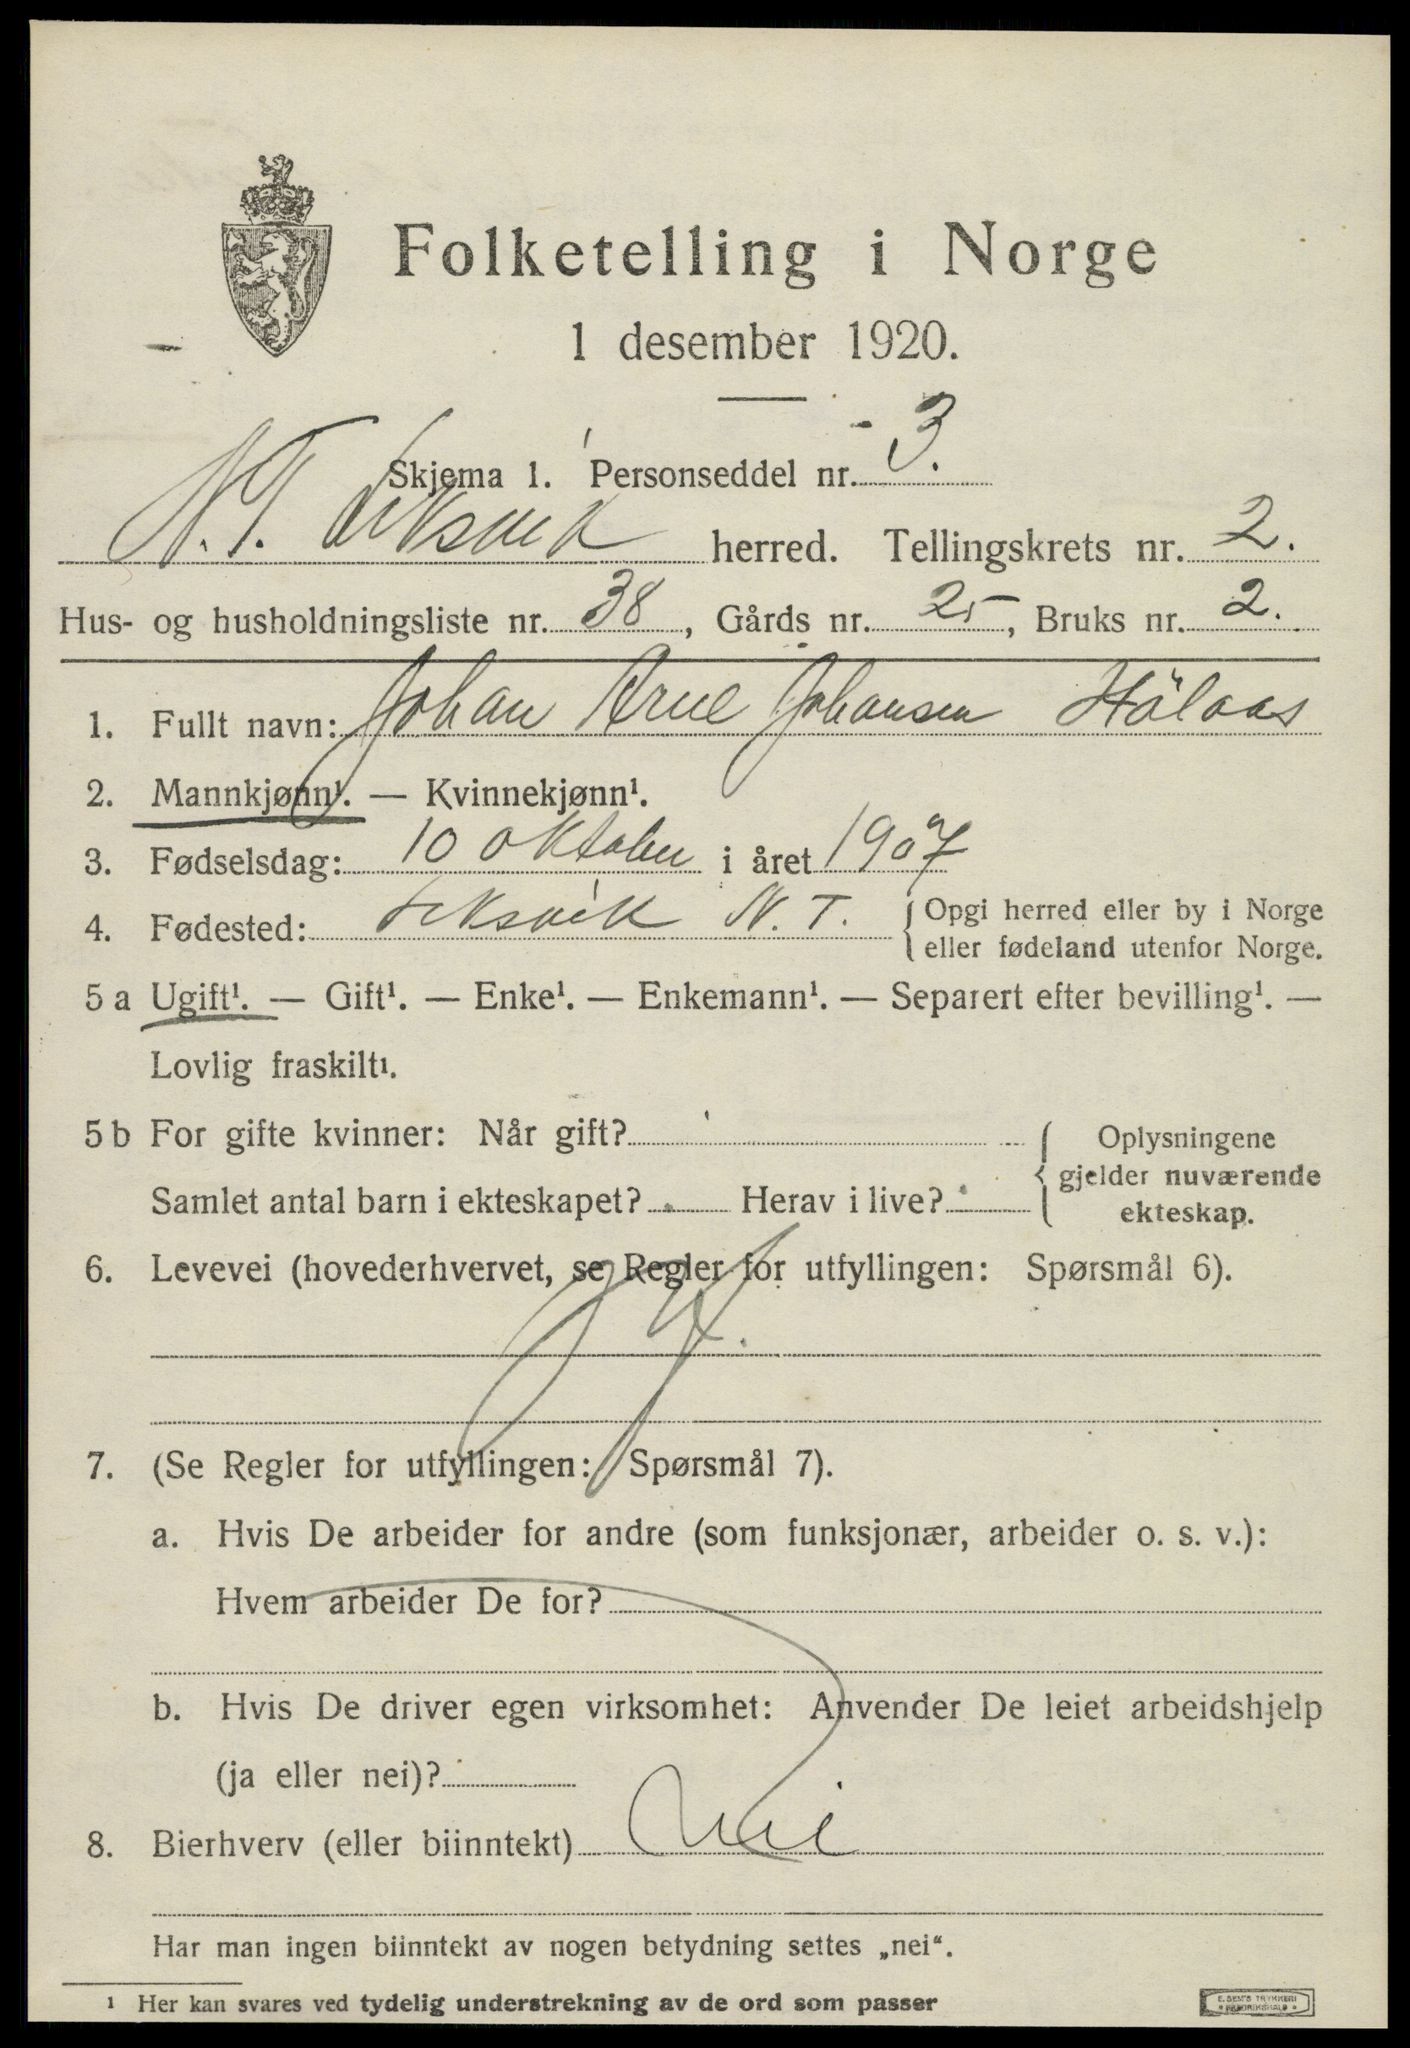 Folketelling i Norge
1 desember 1920.
Skjema 1. Personseddel nr. 3.
N. T. Leksvik herred. Tellingskrets nr. 2.
Hus- og husholdningsliste nr. 38, Gårds nr. 25, Bruks nr. 2.
1. Fullt navn: Johan Arne Johansen Hölaas
2. Mannkjønn¹. — Kvinnekjønn¹.
3. Fødselsdag: 10 oktober i året 1907
4. Fødested: Leksvik N. T. Opgi herred eller by i Norge
eller fødeland utenfor Norge.
5 a Ugift¹. — Gift¹. — Enke¹. — Enkemann¹. — Separert efter bevilling¹. —
Lovlig fraskilt¹.
5 b For gifte kvinner: Når gift? Oplysningene
gjelder nuværende
Samlet antal barn i ekteskapet? Herav i live? ekteskap.
6. Levevei (hovederhvervet, se Regler for utfyllingen: Spørsmål 6).
7. (Se Regler for utfyllingen: Spørsmål 7).
a. Hvis De arbeider for andre (som funksjonær, arbeider o. s. v.):
Hvem arbeider De for?
b. Hvis De driver egen virksomhet: Anvender De leiet arbeidshjelp
(ja eller nei)?
8. Bierhverv (eller biinntekt) Nei
Har man ingen biinntekt av nogen betydning settes „nei“.
¹ Her kan svares ved tydelig understrekning av de ord som passer
E. SEM'S TRYKKERI
FREDRIKSHALD